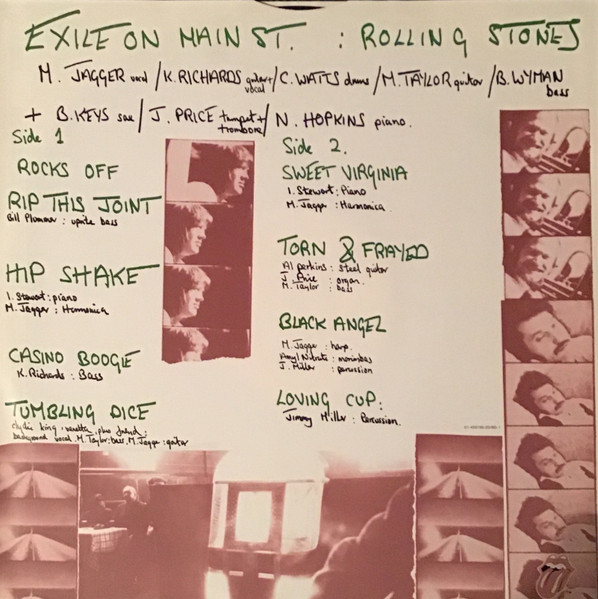 EXILE ON MAIN ST. : ROLLING STONES
M. JAGGER vocal / K. RICHARDS guitar + vocal / C. WATTS drums / M. TAYLOR guitar / B. WYMAN bass
+ B. KEYS sax / J. PRICE trumpet + trombone / N. HOPKINS piano.
Side 1
ROCKS OFF
RIP THIS JOINT
Bill Plummer : uprite bass
HIP SHAKE
I. Stewart : piano
M. Jagger : Harmonica
CASINO BOOGIE
K. Richards : Bass
TUMBLING DICE
clydie king, vanetta, plus friend :
background vocal. M. Taylor : bass. M. Jagger : guitar
Side 2.
SWEET VIRGINIA
I. Stewart : Piano
M. Jagger : Harmonica
TORN & FRAYED
Al perkins : steel guitar
J. Price : organ.
M. Taylor : bass
BLACK ANGEL
M. Jagger : harp.
Amyl Nitrate : marimbas
J. Miller : percussion
LOVING CUP :
Jimmy Miller : Percussion.